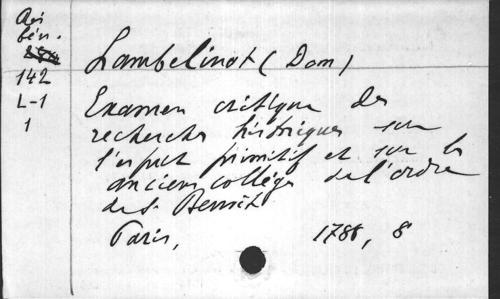 Rés
bén.
142
L-1
1
Lambelinot (Dom)
Examen critique des
recherches historiques sur
l'esprit primitif et sur les
anciens collèges de l'ordre
de S. Benoît
Paris, 1788, 8